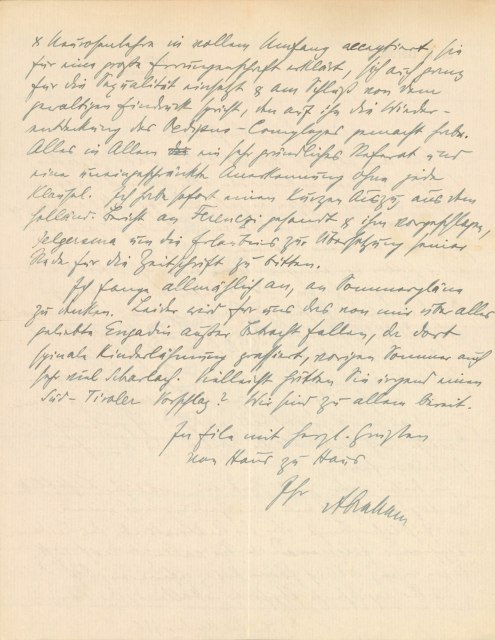 & Neurosenlehre in vollem Umfang acceptiert, sie
für eine große Errungenschaft erklärt, sich auch ganz
für die Sexualität einsetzt & am Schluß von dem
gewaltigen Eindruck spricht, den auf ihn die Wieder-
entdeckung des Oedipus-Complexes gemacht habe.
Alles in Allem ein sehr gründliches Referat und
eine uneingeschränkte Anerkennung ohne jede
Klausel. Ich habe sofort einen kurzen Auszug aus dem
holländ. Bericht an Ferenczi gesandt & ihm vorgeschlagen,
Jelgersma um die Erlaubnis zur Übersetzung seiner
Rede für die Zeitschrift zu bitten.
Ich fange allmählich an, an Sommerpläne
zu denken. Leider wird für uns das von mir über alles
geliebte Engadin außer Betracht fallen, da dort
spinale Kinderlähmung grassiert, vorigen Sommer auch
sehr viel Scharlach. Vielleicht hätten Sie irgend einen
Süd-Tiroler Vorschlag? Wir sind zu allem bereit.
In Eile mit herzl. Grüßen
von Haus zu Haus
Ihr
Abraham